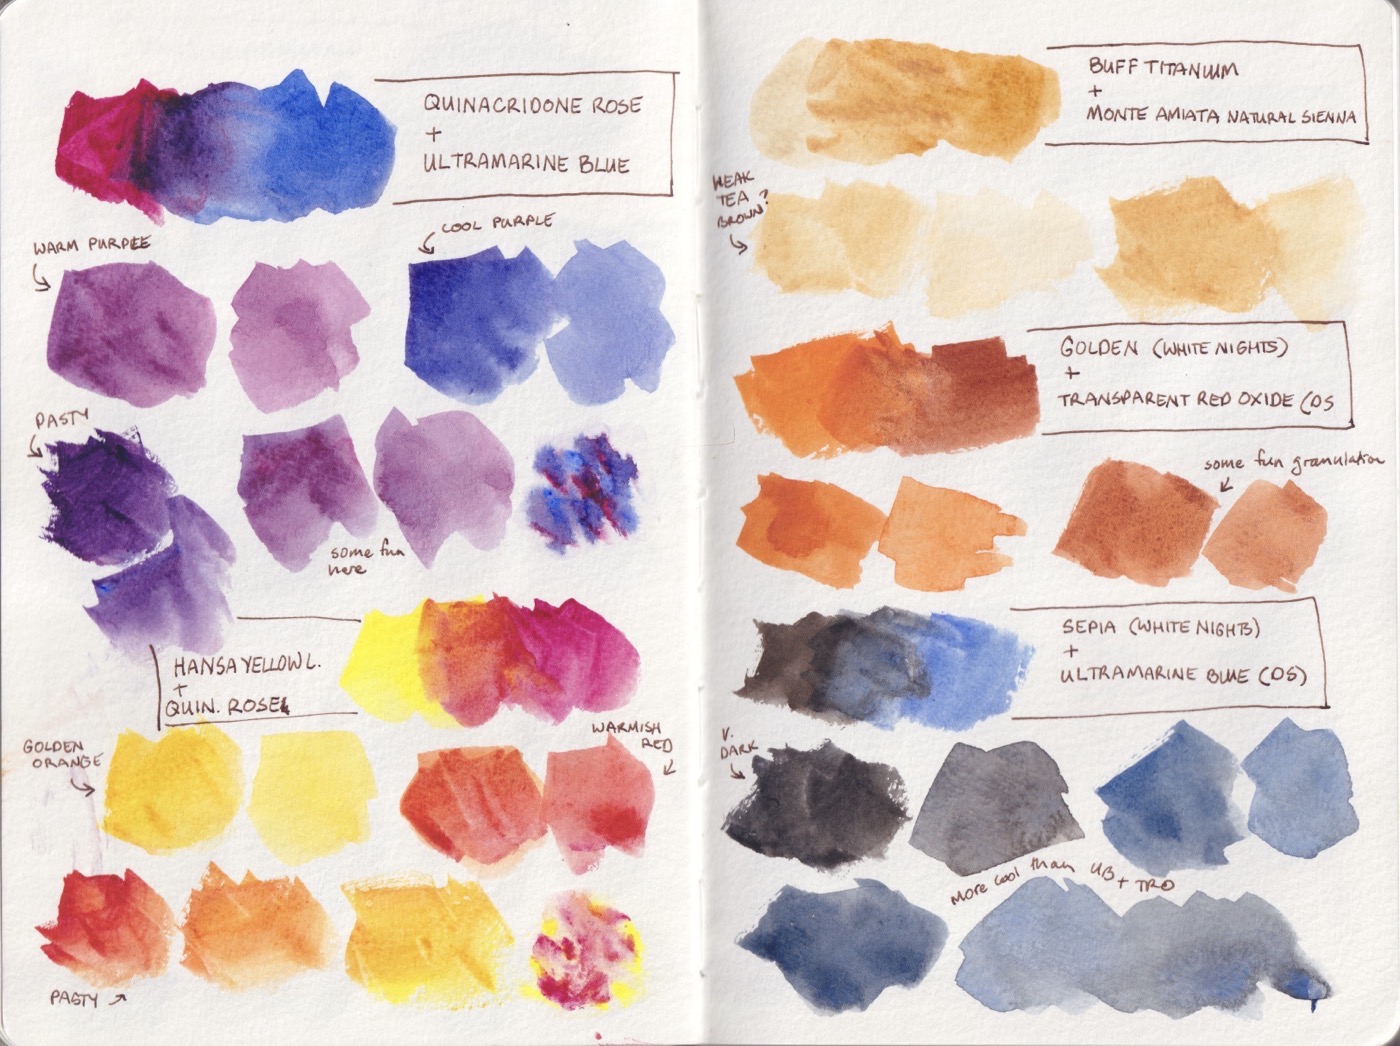 QUINACRIDONE ROSE
+
ULTRAMARINE BLUE
WARM PURPLE
COOL PURPLE
PASTY
some fun
here
HANSA YELLOW L.
+
QUIN. ROSE
GOLDEN
ORANGE
WARMISH
RED
PASTY
BUFF TITANIUM
+
MONTE AMIATA NATURAL SIENNA
WEAK
TEA
BROWN?
GOLDEN (WHITE NIGHTS)
+
TRANSPARENT RED OXIDE (DS
some fun granulation
SEPIA (WHITE NIGHTS)
+
ULTRAMARINE BLUE (DS)
V.
DARK
More cool than UB + TRO